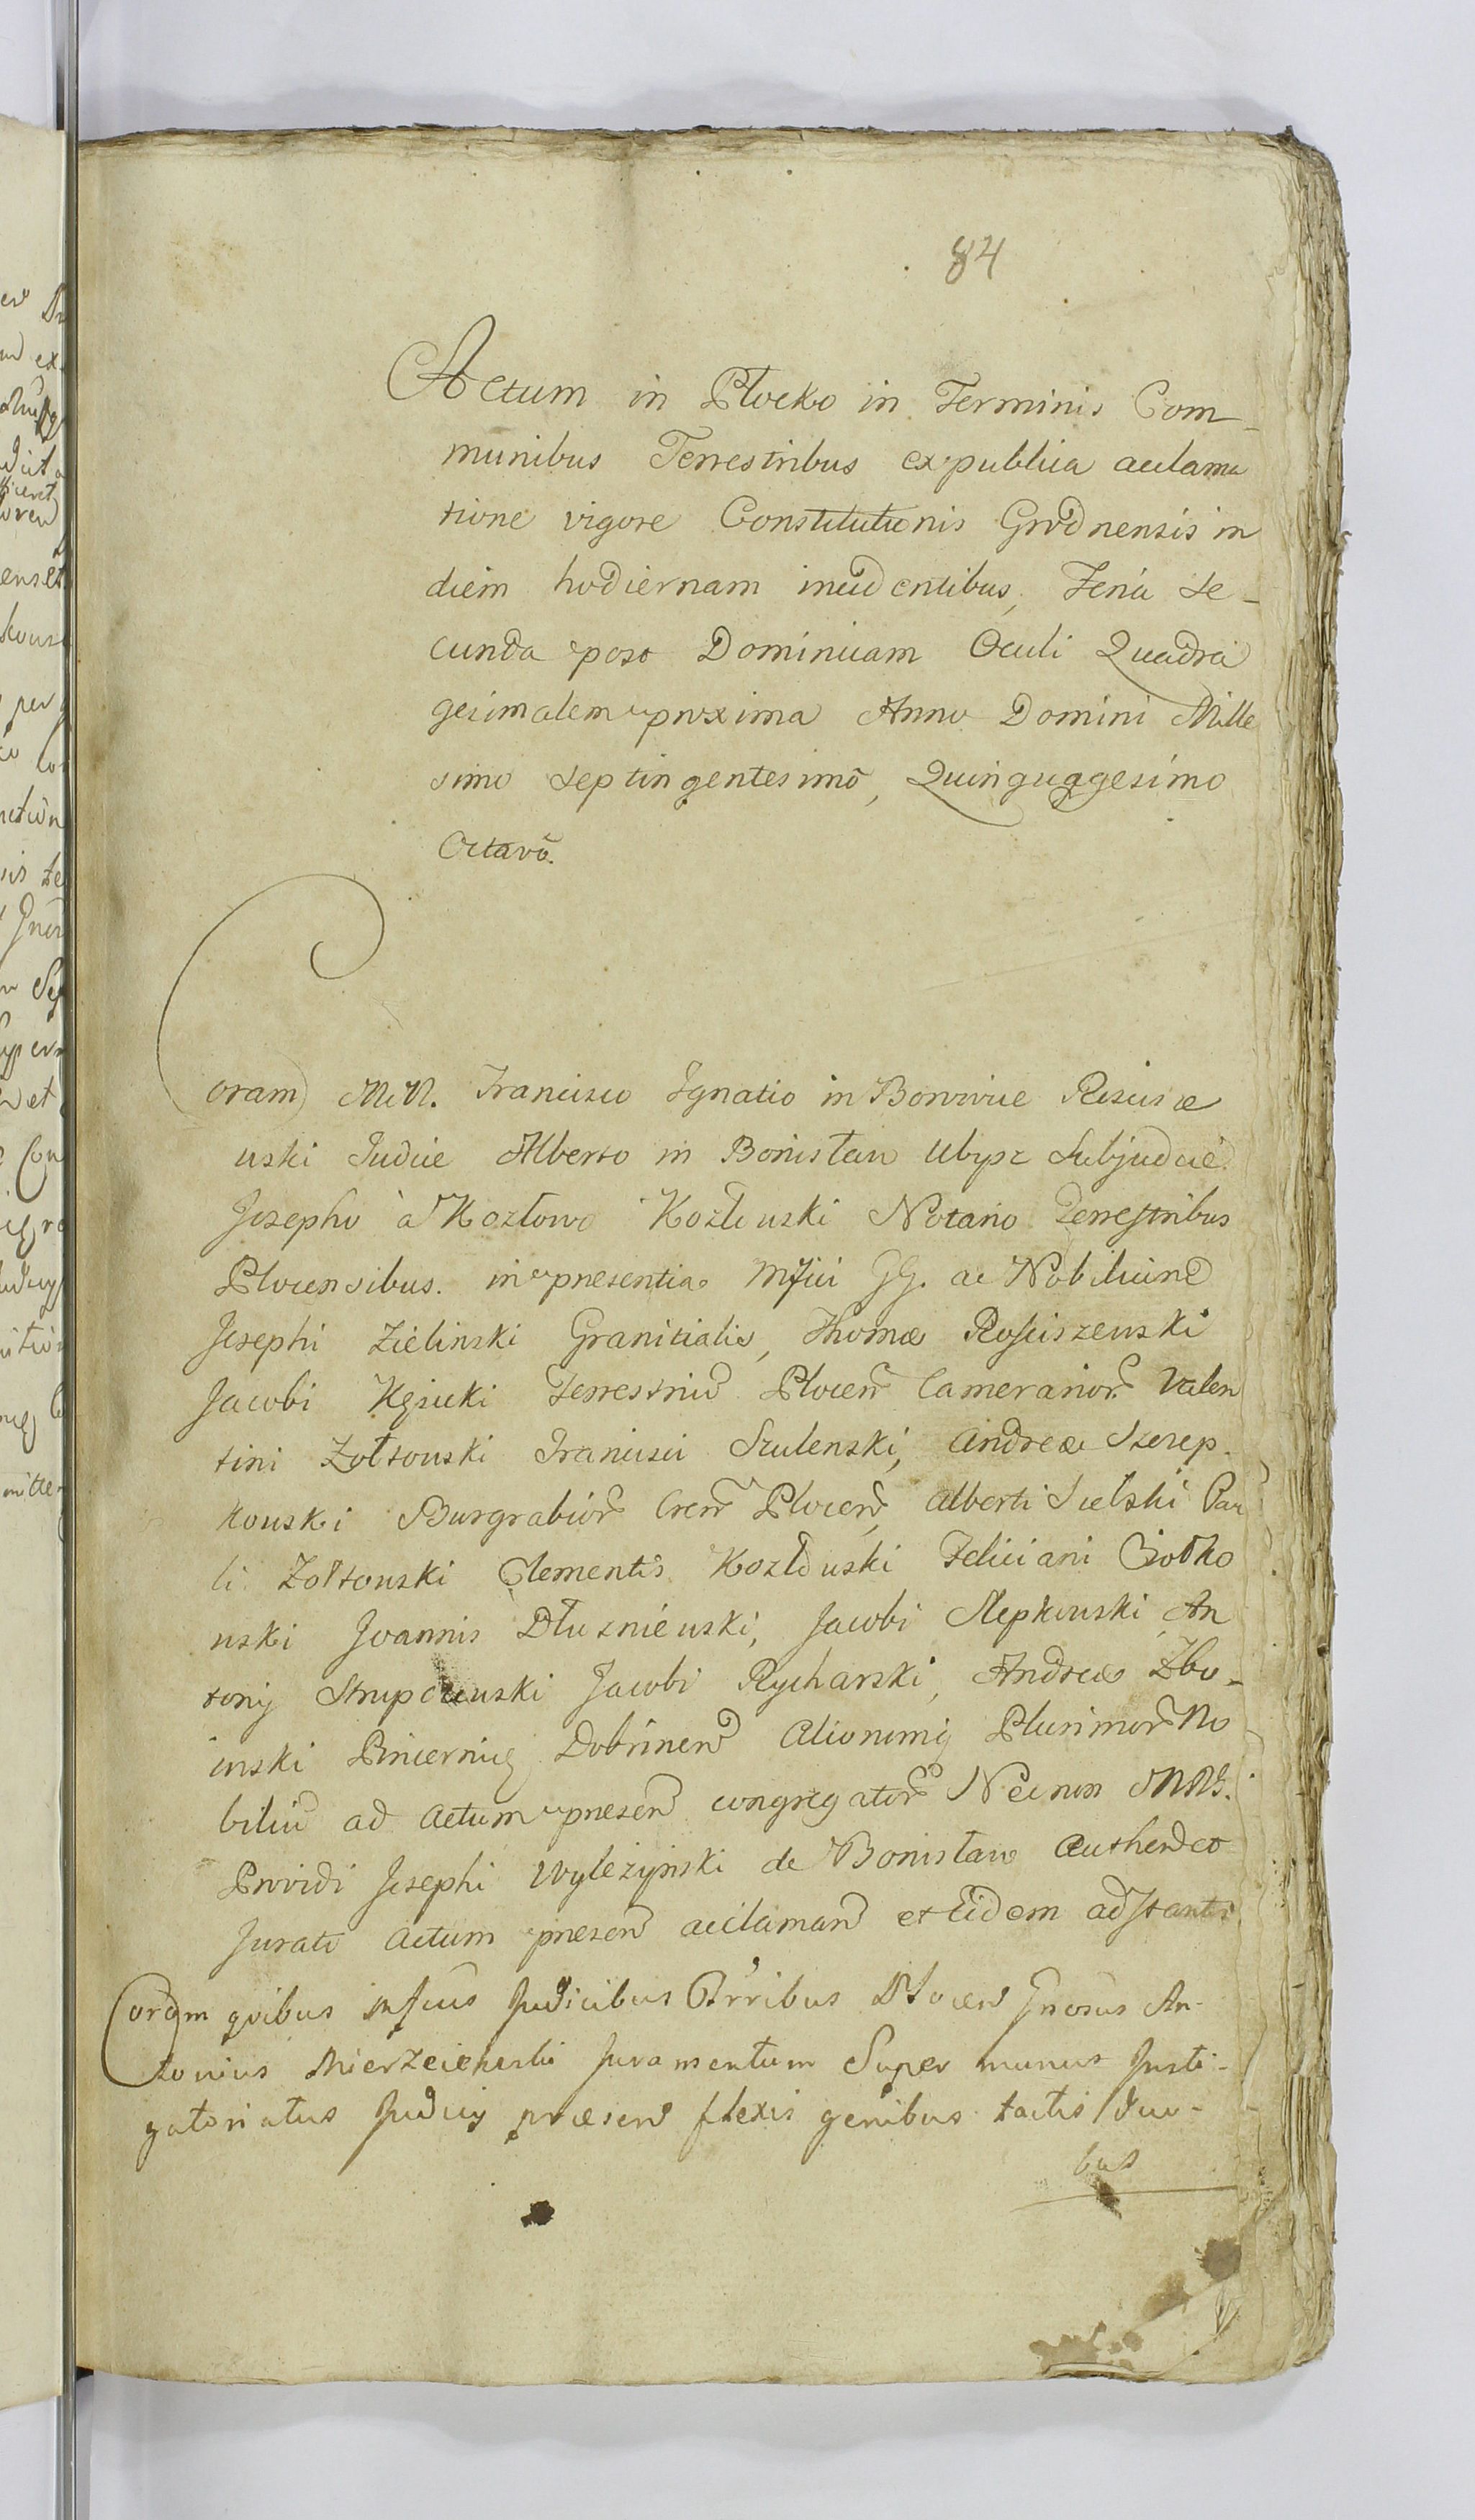 84
Actum in Płocko in Terminis Com-
munibus Terrestribus ex publica acclama
tione vigore Constitutionis Grodnensis in
diem hodiernam incidentibus, Feria Se-
cunda post Dominicam Oculi Quadra
gesimalem proxima Anno Domini Mille
simo Septingentesimo, Quinquagesimo
Octavo.
Coram MM. Francisco Ignatio in Borowice
uski Judice Alberto in Bonisław Ubysz Subjudice
Josepho à Kozłowo Kozłouski Notario Terrestribus
Plocensibus. in presentia Mfici GG. ac Nobilium
Josephi Zielinski Granitialis, Thomæ Rosciszeuski
Jacobi Kęsicki Terrestrium Plocen Camerarior Valen
tini Zołtouski Francisci Szulenski, Andreæ Szerep-
kouski Burgrabior Cren Plocen, Alberti Sielski Pau
li Zołtouski Clementis Kozłouski Feliciani Ciołko
uski Joannis Dłuznieuski, Jacobi Slepkouski, An
tonij Strupczeuski Jacobi Rycharski, Andreæ Zbo-
inski Pincernię Dobrinen Aliorumq Plurimor No
bilium ad Actum presen congregator Necnon
Providi Josephi Wylezynski de Bonisław Authen et
Jurati Actum presen acclaman et Eidem adstantis
Coram quibus Judicibus Plocen Gnosus An-
tonius Mierzeieuski Juramentum Super munus Insti-
gatoriatus Judicij præsen flexis genibus tactis duo-
bus